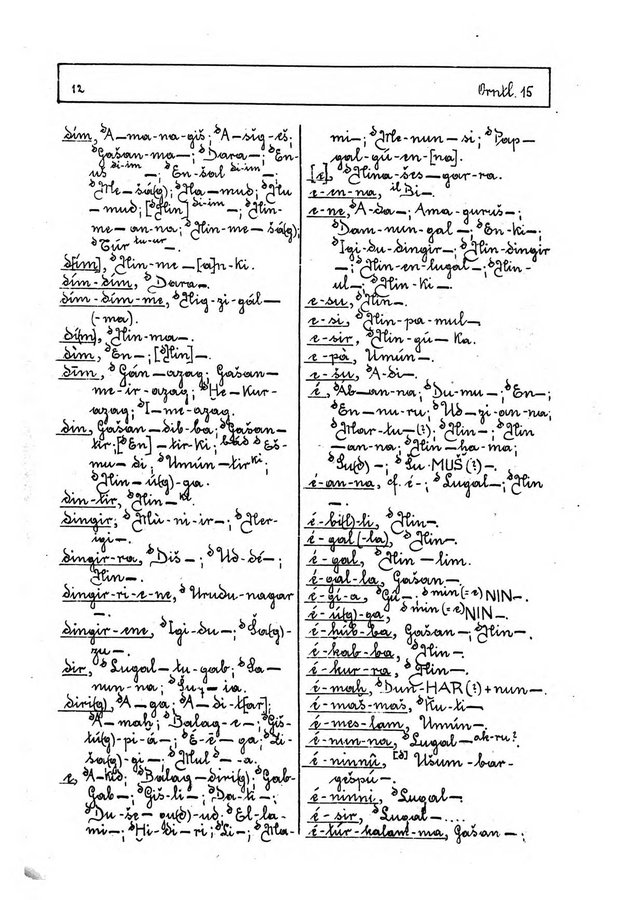 12
Orntl. 15
dím, ᵈA—ma-na-giš; ᵈA—šig-eš;
ᵈGašan-ma—; ᵈDara—; ᵈEn-
ᵈMe—šá(g); ᵈNa—mud; ᵈNu
—mud; [ᵈNin] ᵈⁱ⁻ⁱᵐ —; ᵈNin-
me—an-na; ᵈNin-me—šá(g);
ᵈTúr ᵗᵘ⁻ᵘʳ —.
ᵈNin-me—[a]n-ki.
dím-dím, ᵈDara—.
dím-dím-me, ᵈNig-zi-gál—
(-ma).
ᵈNin-ma—.
dìm, ᵈEn—; [ᵈNin]—.
dīm, ᵈGán—azag; Gašan—
me-ir-azag; ᵈHe-kur-
azag; ᵈI—ne-azag.
din, Gašan—dib-ba; ᵈGašan—
tir; [ᵈEn]—tir-ki; ᵈEš-
mu—di; ᵈUmún—tirᵏⁱ;
ᵈNin—ú(g)-ga.
din-tir, ᵈNin—ᵏⁱ.
dingir, ᵈMù-ni-ir—; ᵈNer-
igi—.
dingir-ra, ᵈDiš—; ᵈUd-dé—;
ᵈNin—.
dingir-ri-e-ne, ᵈUrudu-nagar
—.
dingir-ene, ᵈIgi-du—; ᵈŠa(g)-
zu—.
dir, ᵈLugal—tu-gab; ᵈSa—
nun-na;
diri(g), ᵈA—ga; ᵈA—di-t[ar];
ᵈA—maḫ; ᵈBalag-e—; ᵈGiš-
tú(g)-pi-á—; ᵈÉ-e—ga; ᵈLi-
ša(g)-gi—; ᵈMul—a.
e, ᵈA-kid; ᵈBalag—diri(g); ᵈGab-
Gab—; ᵈGiš-li—; ᵈDa-ti—;
ᵈDu-še—gu(d)-ud; ᵈEl-la-
mi—; ᵈḪi-di-ri; ᵈLi—; ᵈMa-
mi—; ᵈMe-nun—si; ᵈPap—
gal-gú-en-[na].
[e], ᵈNina-šes—gar-ra.
e-en-na, ⁱˡBi—.
e-ne, ᵈA-da—; Ama-guruš—;
ᵈDam-nun-gal—; ᵈEn-ki—;
ᵈIgi-du-dingir—; ᵈNin-dingir
—; ᵈNin-en-lugal—; ᵈNin-
ul—; ᵈNin-ki—.
e-su, ᵈNin—.
e-si, ᵈNin-pa-mul—
e-sir, ᵈNin-gú—ka.
e-pá, Umún—.
e-šu, ᵈA-di—.
é, ᵈAb—an-na; ᵈDu-mu—; ᵈEn—;
ᵈEn—nu-ru; ᵈUd-zi-an-na;
ᵈMar-tu—(?); ᵈNin—; ᵈNin
—an-na; ᵈNin—ha-ma;
ᵈSu(d)—; ᵈŠu-MUŠ(?)—.
é-an-na, cf. é-; ᵈLugal—; ᵈNin
—.
é-bi(l)-li, ᵈNin—.
é-gal(-la), ᵈNin—.
é-gal, ᵈNin—lim.
é-gal-la, Gašan—.
é-gi-a, ᵈGú—; ᵈmin(=e)NIN—.
é-ú(g)-ga, ᵈmin(=e)NIN—.
é-húb-ba, Gašan—; ᵈNin—.
é-kab-ba, ᵈNin—.
é-kur-ra, ᵈNin—.
é-maḫ, ᵈDun-HAR(?)+nun—.
é-maš-maš, ᵈKu-ti—
é-mes-lam, Umún—.
é-nun-na, ᵈLugal—ᵃᵏ⁻ʳᵘ?.
é-ninnû, [ᵈ]Ušum-bar-
gišpú—.
é-ninni, ᵈLugal—.
é-sir, ᵈLugal—....
é-túr-kalam-ma, Gašan—;